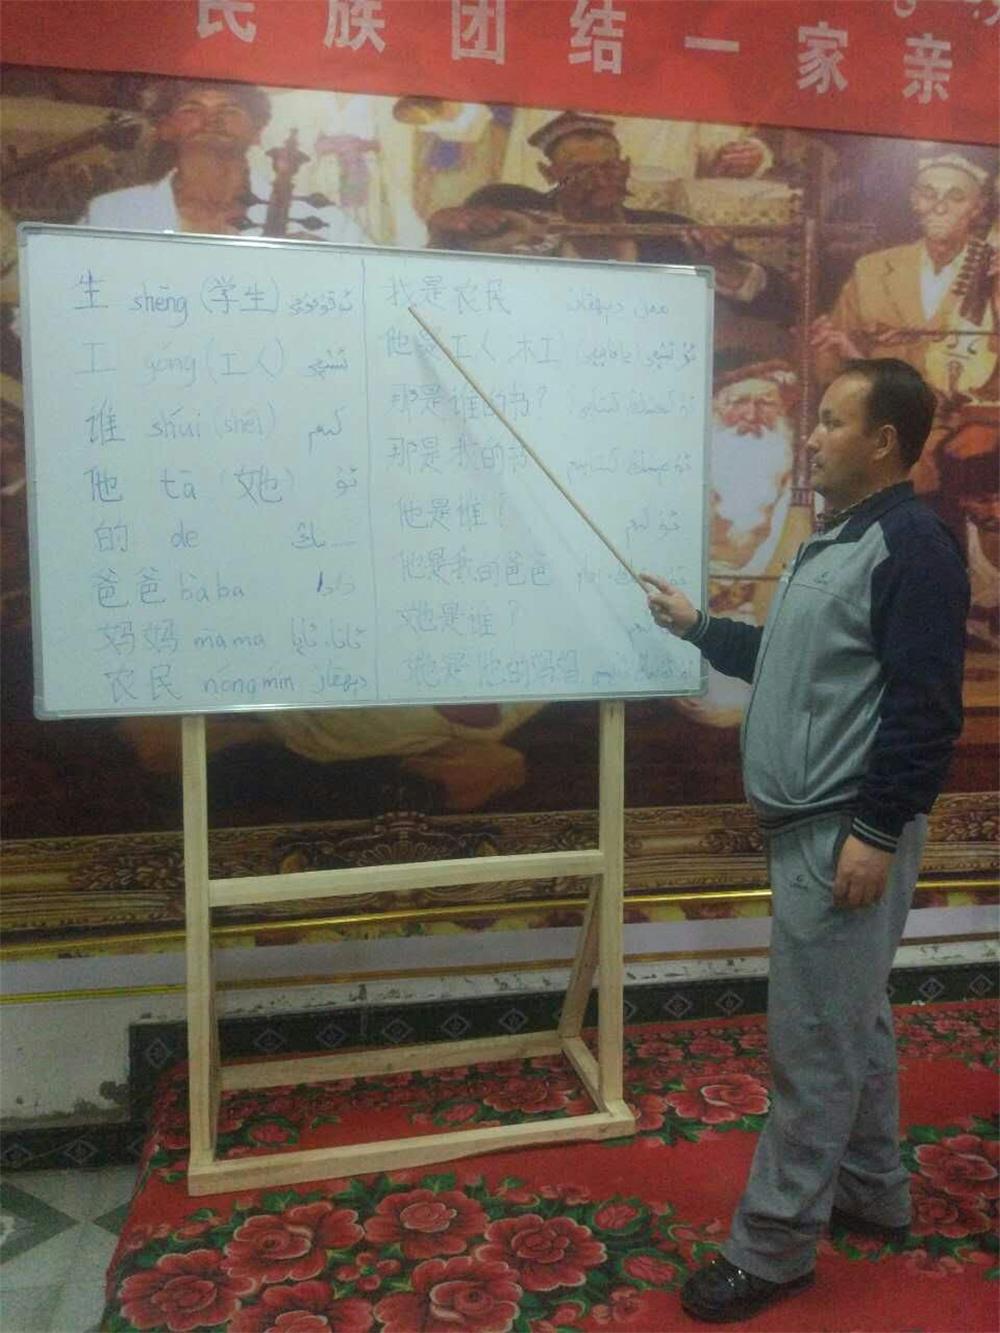 民族团结一家亲
生 shēng (学生) ئوقۇغۇچى
工 gōng (工人) ئىشچى
谁 shúi (shéi) كىم
他 tā (她) ئۇ
的 de ـــ نىڭ
爸爸 bàba دادا
妈妈 māma ئانا، ئاپا
农民 nóngmín دېھقان
我是农民 مەن دېھقان
他是工人 木工)
那是谁的书?
那是我的书
他是谁? ئۇ كىم
他是我的爸爸
她是谁?
她是他的妈妈